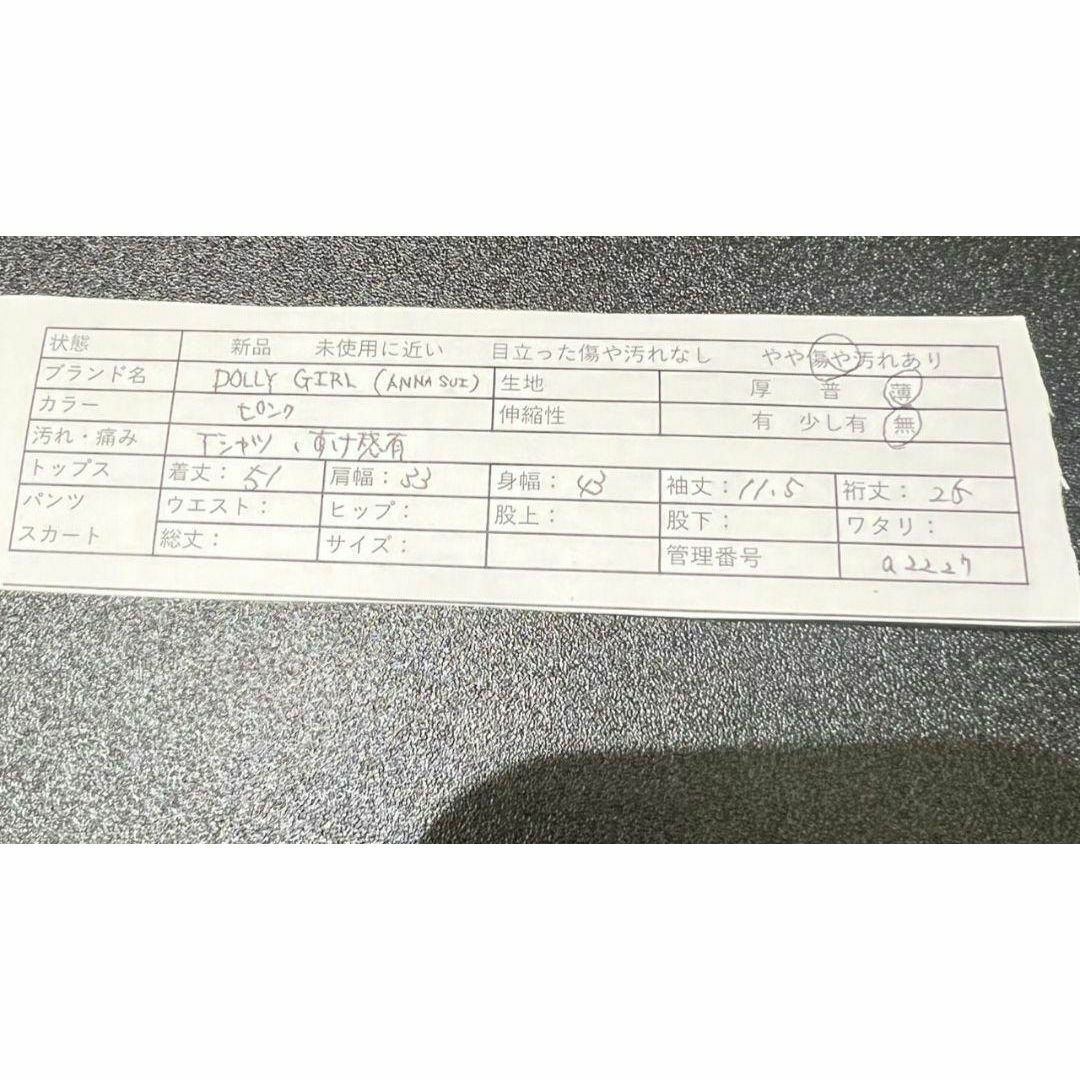 状態 新品 未使用に近い 目立った傷や汚れなし やや傷や汚れあり
ブランド名 DOLLY GIRL (ANNA SUI) 生地 厚 普 薄
カラー ピンク 伸縮性 有 少し有 無
汚れ・痛み Tシャツ、すけ感有
トップス 着丈:51 肩幅:33 身幅:43 袖丈:11.5 裄丈:26
パンツ ウエスト: ヒップ: 股上: 股下: ワタリ:
スカート 総丈: サイズ: 管理番号 a2227